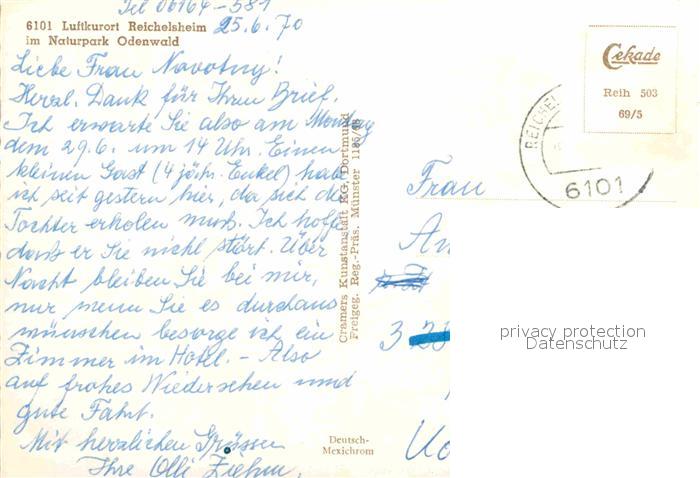 Tel 06164-581
6101 Luftkurort Reichelsheim
im Naturpark Odenwald
25.6.70
Liebe Frau Navotny!
Herzl. Dank für Ihren Brief.
Ich erwarte Sie also am Montag
dem 29.6. um 14 Uhr. Einen
kleinen Gast (4 jähr. Enkel) habe
ich seit gestern hier, da sich die
Tochter erholen muß. Ich hoffe
daß er Sie nicht stört. Über
Nacht bleiben Sie bei mir,
nur wenn Sie es durchaus
wünschen besorge ich ein
Zimmer im Hotel. - Also
auf frohes Wiedersehen und
gute Fahrt.
Mit herzlichen Grüssen
Ihre Olli Ziehm.
Cramers Kunstanstalt KG, Dortmund
Freigeg. Reg.-Präs. Münster
Deutsch-
Mexichrom
Cekade
Reih 503
69/5
REICHEL
6101
Frau
An
3
privacy protection
Datenschutz